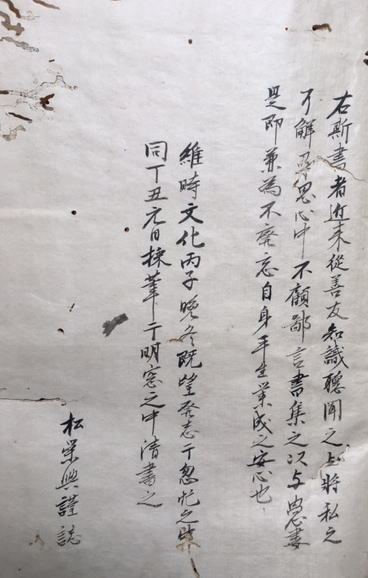 右斯書者近来従善友知識聴聞之上将私之
了解愚心中不顧鄙言書集之以与愚妻
是即兼為不廃忘自身平生業成之安心也
維時文化丙子晩冬既望発志于忽忙之
同丁丑元日採筆于明窓之中清書之
松栄興謹誌